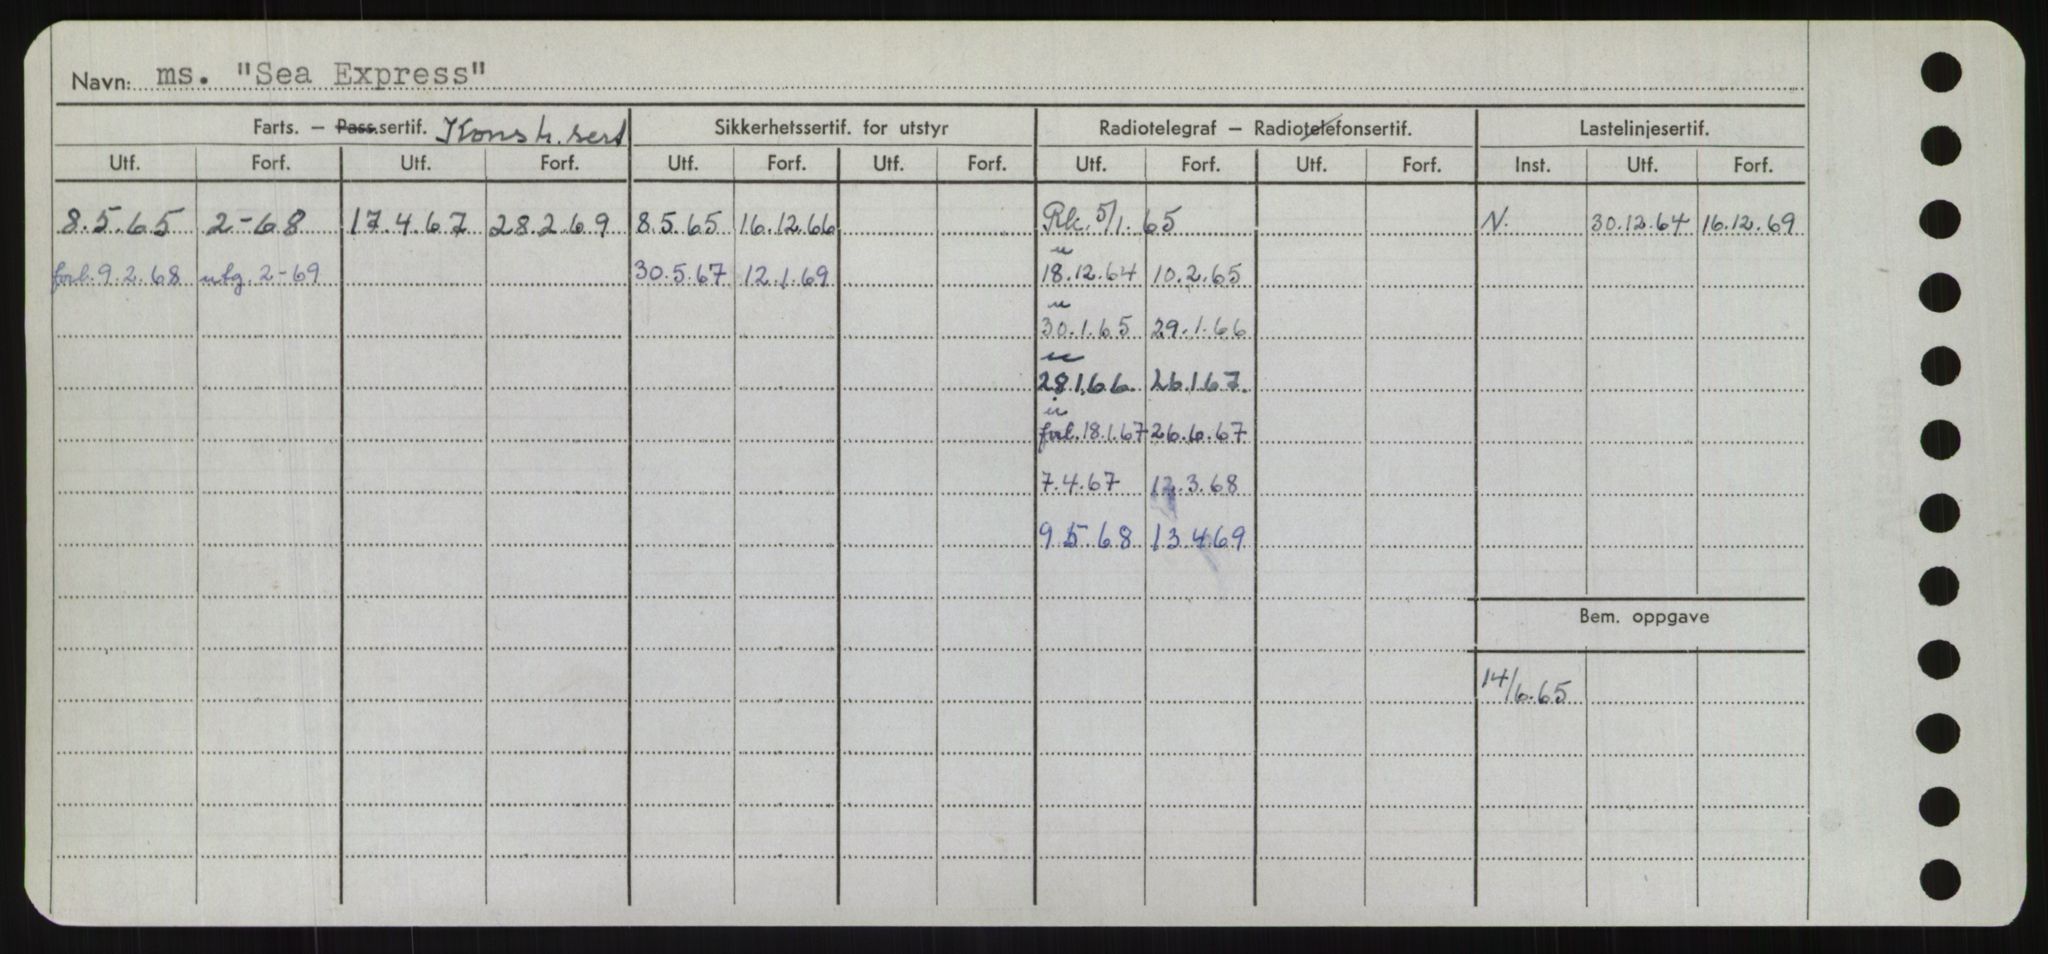 Navn: ms. "Sea Express"
Farts. – Pass.sertif. Konstr. sert Sikkerhetssertif. for utstyr Radiotelegraf – Radiotelefonsertif. Lastelinjesertif.
Utf. Forf. Utf. Forf. Utf. Forf. Utf. Forf. Utf. Forf. Utf. Forf. Inst. Utf. Forf.
8.5.65 2-68 17.4.67 28.2.69 8.5.65 16.12.66 5/1.65 N. 30.12.64 16.12.69
forl. 9.2.68 utg. 2-69 30.5.67 12.1.69 18.12.64 10.2.65
30.1.65 29.1.66
28.1.66. 26.1.67.
forl. 18.1.67 26.6.67
7.4.67 12.3.68
9.5.68 13.4.69
Bem. oppgave
14/6.65